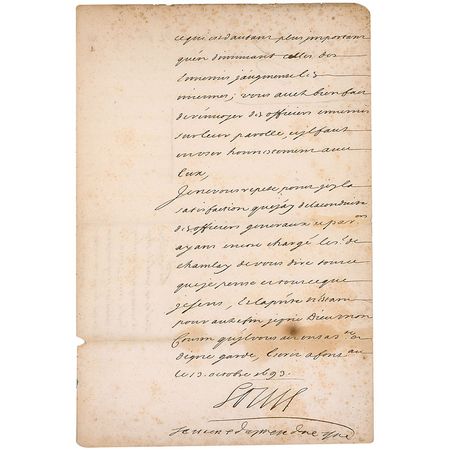 ce qui est d'autant plus important
qu'en diminuant celles des
Ennemis j'augmente les
miennes; vous avez bien fait
de renvoyer des officiers ennemis
sur leur parolle, et il faut
en user honnestement avec
Eux,
Je ne vous repete point icy la
satisfaction que j'ay de la conduite
des officiers generaux et par^ers
ayant encore chargé le s^r. de
chamlay de vous dire sur ce
que je pense et sur ce que
je sens, Et la p^rnte n'estant
pour autre fin je prie Dieu mon
Cousin qu'il vous ait en sa s^te. et
digne garde, Escrit a fon^au
le 13. octobre 1693.
Louis